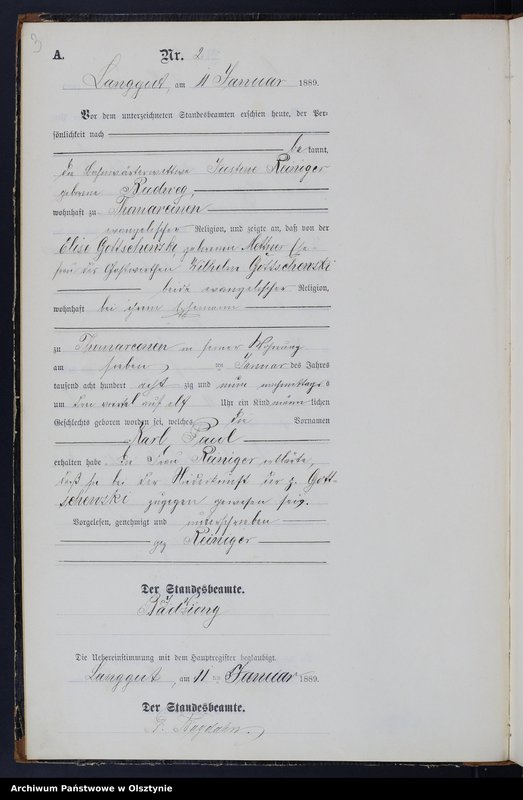 3
A. Nr. 2
Langgut, am 11 Januar 1889.
Vor dem unterzeichneten Standesbeamten erschien heute, der Per-
sönlichkeit nach
be kannt,
die Bahnwärterwittwe Justine Reiniger
geborene Budweg,
wohnhaft zu Thomareinen
evangelischer Religion, und zeigte an, daß von der
Elise Gottschewski geborenen Ehe-
frau des Gastwirthen Wilhelm Gottschewski
beide evangelischer Religion,
wohnhaft bei ihrem Ehemann
zu Thomareinen in seiner Wohnung
am sieben ten Januar des Jahres
tausend acht hundert acht zig und neun nachmittags
um drei viertel auf elf Uhr ein Kind männ lichen
Geschlechts geboren worden sei, welches die Vornamen
Karl Paul
erhalten habe. Die Frau Reiniger erklärte,
daß sie bei der Niederkunft der p. Gott-
schewski zugegen gewesen sei.
Vorgelesen, genehmigt und unterschrieben
gez Reiniger
Der Standesbeamte.
Die Uebereinstimmung mit dem Hauptregister beglaubigt.
Langgut, am 11 ten Januar 1889.
Der Standesbeamte.
Archiwum Państwowe w Olsztynie